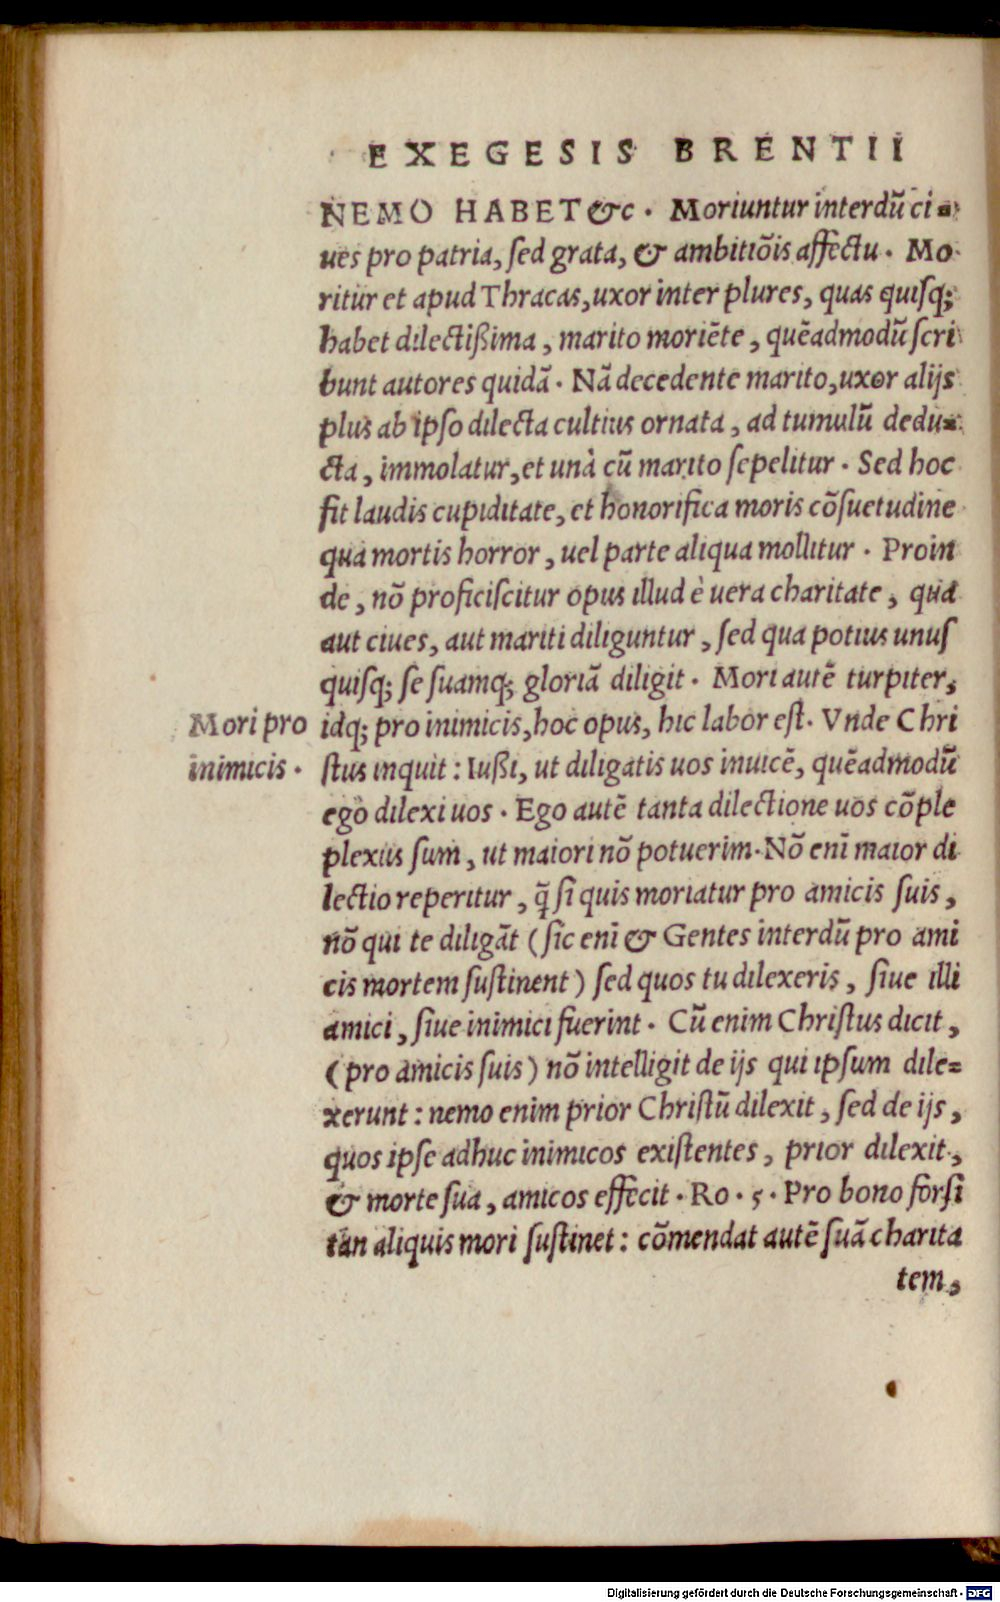 EXEGESIS BRENTII
NEMO HABET &c. Moriuntur interdũ ci=
ues pro patria, ſed grata, & ambitiõis affectu. Mo
ritur et apud Thracas, uxor inter plures, quas quiſq;
habet dilectißima, marito moriẽte, quẽadmodũ ſcri
bunt autores quidã. Nã decedente marito, uxor alijs
plus ab ipſo dilecta cultius ornata, ad tumulũ dedu=
cta, immolatur, et unà cũ marito ſepelitur. Sed hoc
fit laudis cupiditate, et honorifica moris cõſuetudine
qua mortis horror, uel parte aliqua mollitur. Proin
de, nõ proficiſcitur opus illud è uera charitate, qua
aut ciues, aut mariti diliguntur, ſed qua potius unuſ
quiſq; ſe ſuamq; gloriã diligit. Mori autẽ turpiter,
Mori pro
inimicis.
idq; pro inimicis, hoc opus, hic labor eſt. Vnde Chri
ſtus inquit: Iußi, ut diligatis uos inuicẽ, quẽadmodũ
ego dilexi uos. Ego autẽ tanta dilectione uos cõple
plexus ſum, ut maiori nõ potuerim. Nõ enĩ maior di
lectio reperitur, q̃ ſi quis moriatur pro amicis ſuis,
nõ qui te diligãt (ſic enĩ & Gentes interdũ pro ami
cis mortem ſuſtinent) ſed quos tu dilexeris, ſiue illi
amici, ſiue inimici fuerint. Cũ enim Chriſtus dicit,
(pro amicis ſuis) nõ intelligit de ijs qui ipſum dile=
xerunt: nemo enim prior Chriſtũ dilexit, ſed de ijs,
quos ipſe adhuc inimicos exiſtentes, prior dilexit,
& morte ſua, amicos effecit. Ro. 5. Pro bono forſi
tan aliquis mori ſuſtinet: cõmendat autẽ ſuã charita
tem,
Digitalisierung gefördert durch die Deutsche Forschungsgemeinschaft - DFG